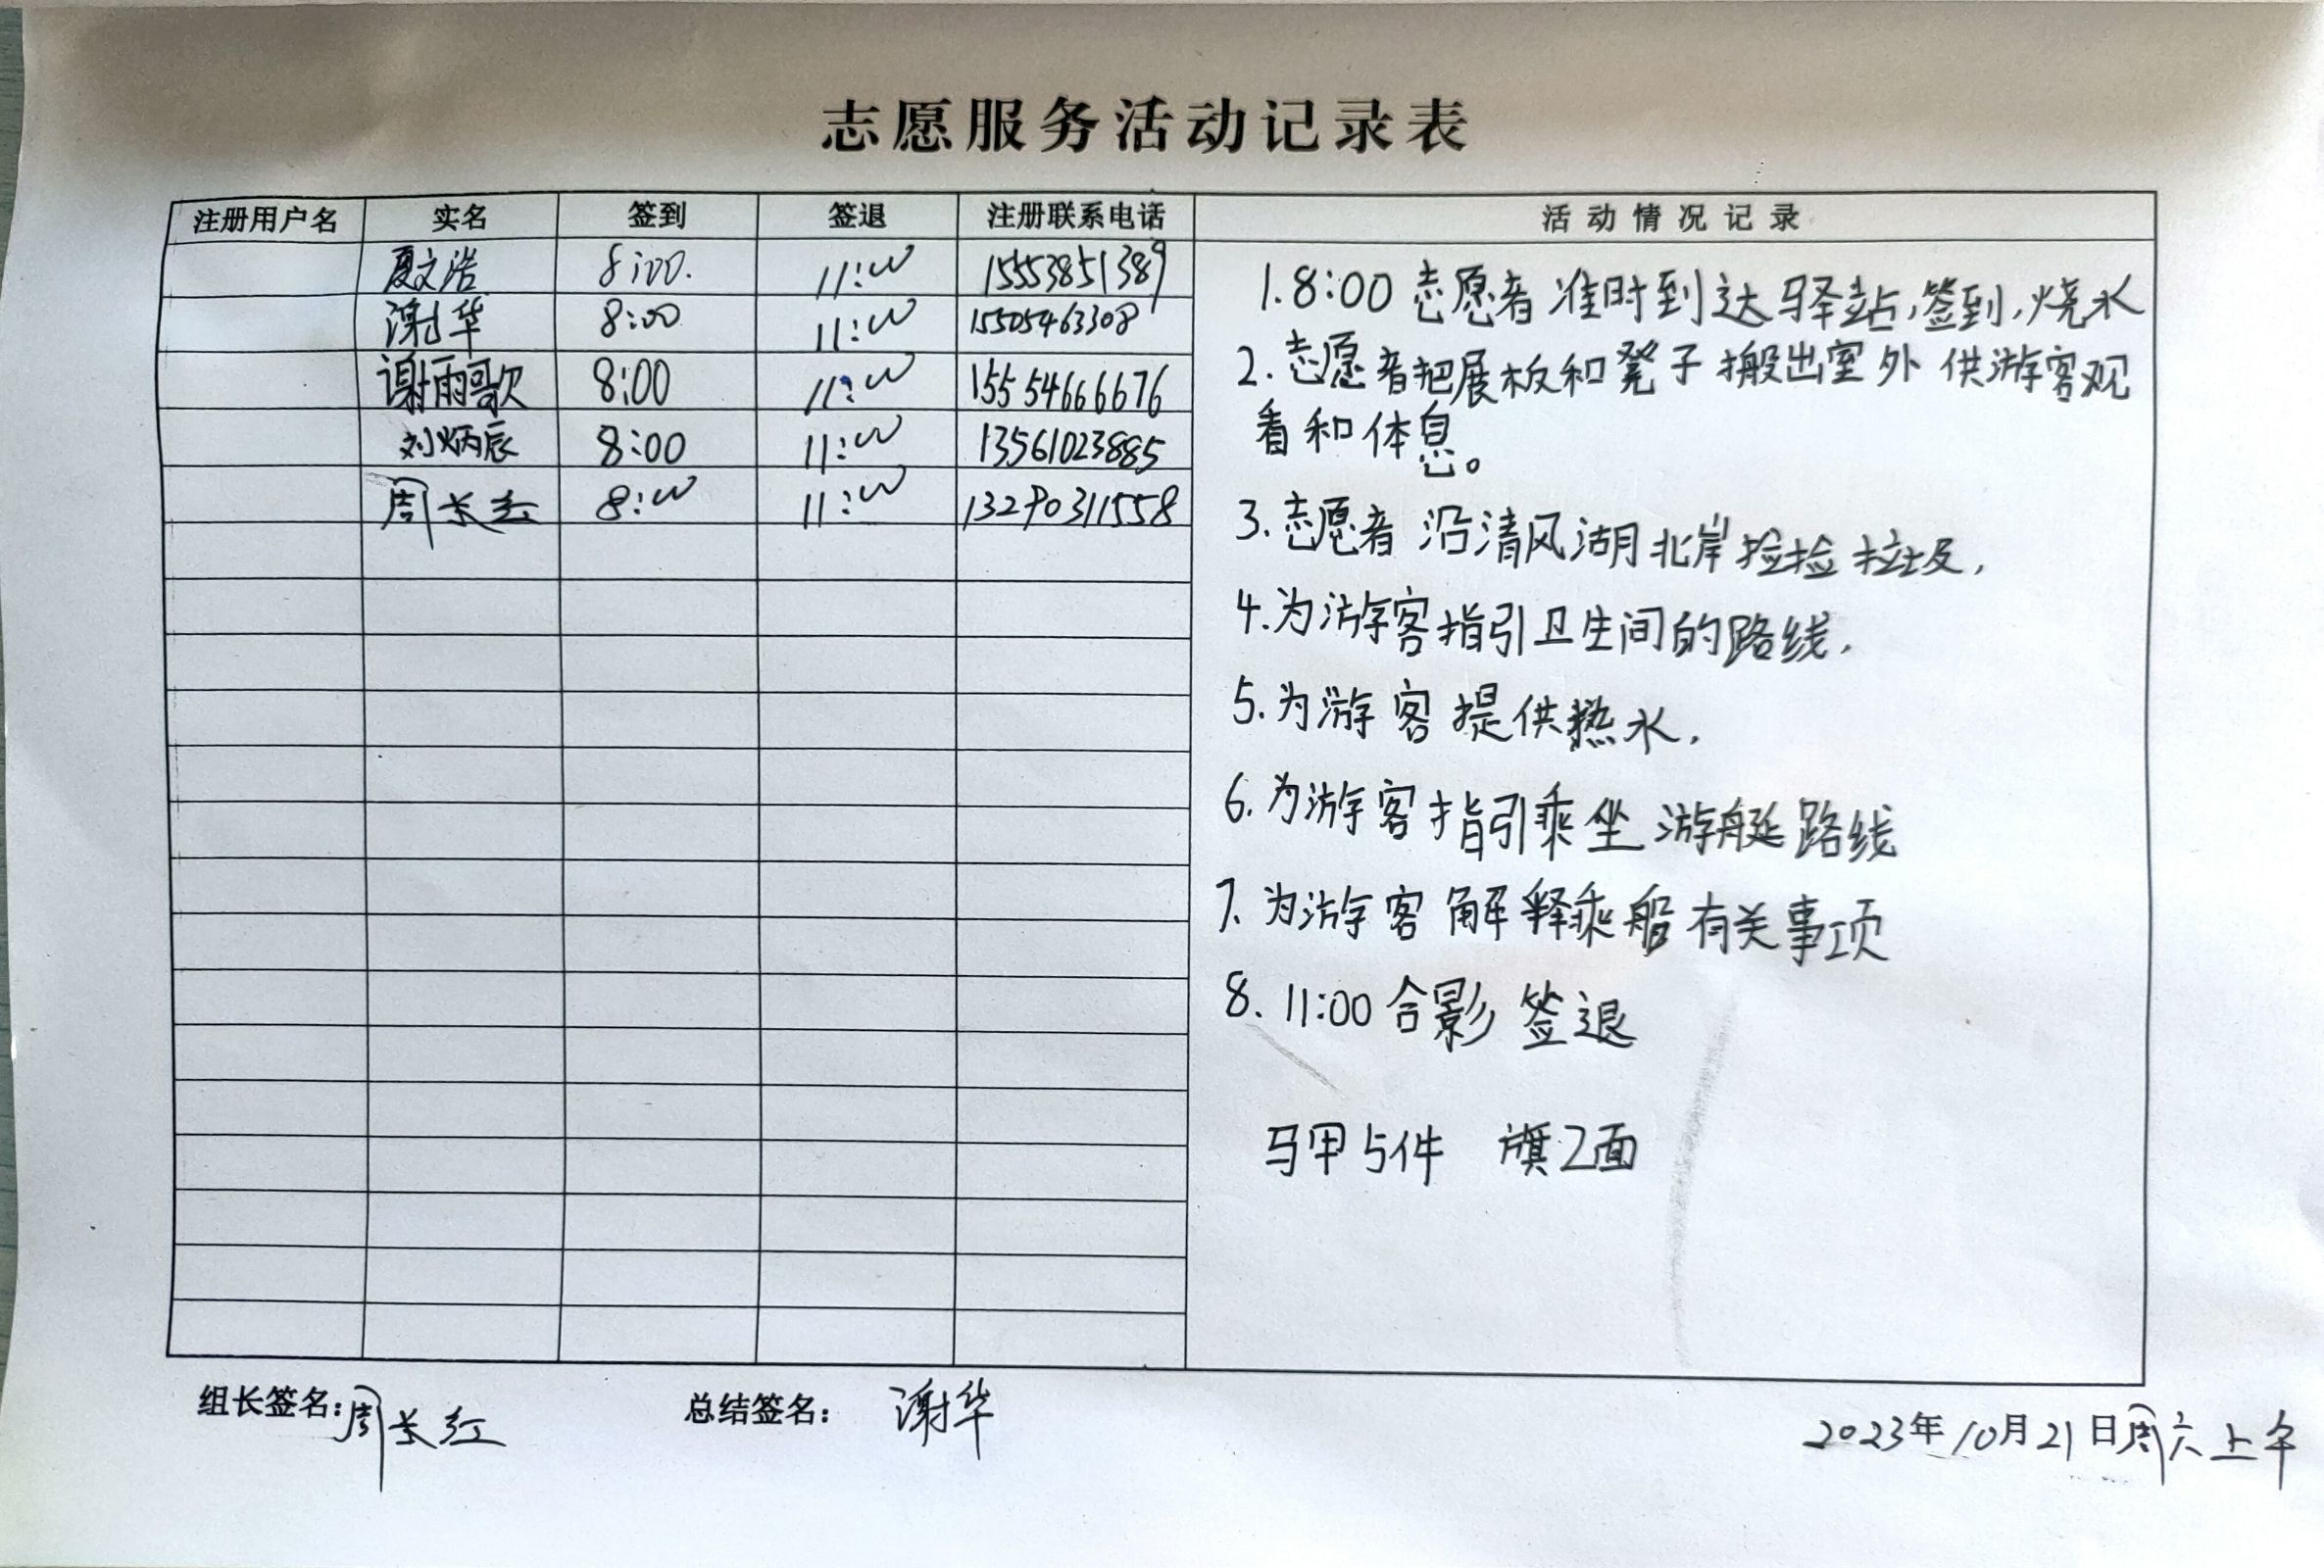 志愿服务活动记录表
注册用户名 实名 签到 签退 注册联系电话 活动情况记录
夏文浩 8:00. 11:00 15553851389
谢华 8:00 11:00 15505463308
谢雨歌 8:00 11:00 15554666676
刘炳辰 8:00 11:00 13561023885
周长红 8:00 11:00 13290311558
1.8:00 志愿者准时到达驿站,签到,烧水
2.志愿者把展板和凳子搬出室外 供游客观
看和休息。
3.志愿者 沿清风湖北岸捡捡垃圾,
4.为游客指引卫生间的路线.
5.为游客提供热水.
6.为游客指引乘坐游艇路线
7.为游客解释乘船有关事项
8. 11:00 合影 签退
马甲5件 旗2面
组长签名:周长红 总结签名: 谢华
2023年10月21日周六上午